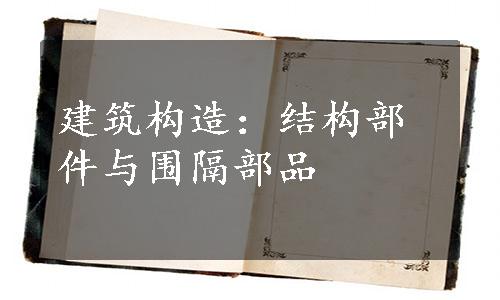 建筑构造：结构部
件与围隔部品